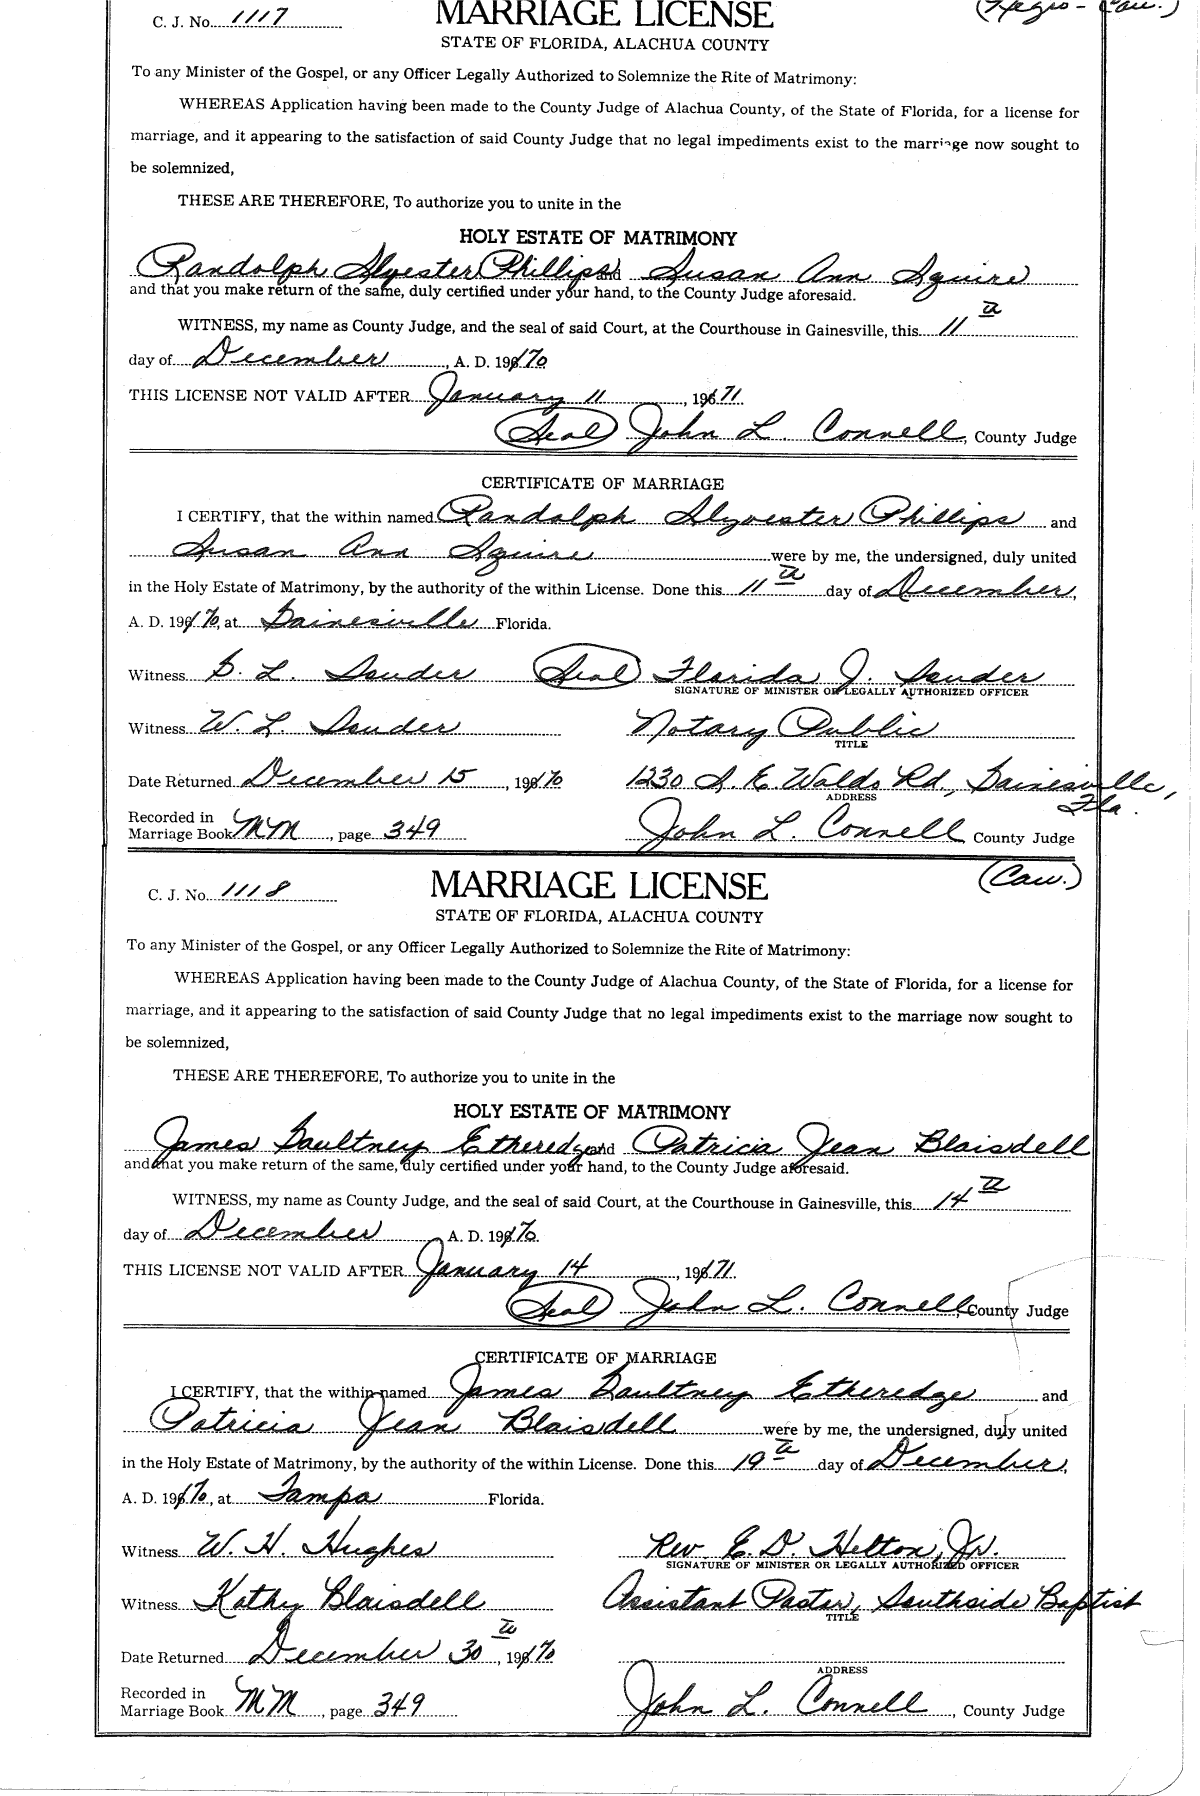 C. J. No. 1117 MARRIAGE LICENSE (Negro - Cau.)
STATE OF FLORIDA, ALACHUA COUNTY
To any Minister of the Gospel, or any Officer Legally Authorized to Solemnize the Rite of Matrimony:
WHEREAS Application having been made to the County Judge of Alachua County, of the State of Florida, for a license for
marriage, and it appearing to the satisfaction of said County Judge that no legal impediments exist to the marriage now sought to
be solemnized,
THESE ARE THEREFORE, To authorize you to unite in the
HOLY ESTATE OF MATRIMONY
Randolph Slyvester Phillips and Susan Ann Squire
and that you make return of the same, duly certified under your hand, to the County Judge aforesaid.
WITNESS, my name as County Judge, and the seal of said Court, at the Courthouse in Gainesville, this 11th
day of December, A. D. 1970
THIS LICENSE NOT VALID AFTER January 11, 1971.
(Seal) John L. Connell, County Judge
CERTIFICATE OF MARRIAGE
I CERTIFY, that the within named Randolph Slyvester Phillips and
Susan Ann Squire were by me, the undersigned, duly united
in the Holy Estate of Matrimony, by the authority of the within License. Done this 11th day of December,
A. D. 1970, at Gainesville Florida.
Witness G. L. Souder (Seal) Florida J. Souder
SIGNATURE OF MINISTER OR LEGALLY AUTHORIZED OFFICER
Witness W. L. Souder Notary Public
TITLE
Date Returned December 15, 1970 1230 S. E. Waldo Rd., Gainesville,
ADDRESS Fla.
Recorded in
Marriage Book MM, page 349 John L. Connell County Judge
C. J. No. 1118 MARRIAGE LICENSE (Cau.)
STATE OF FLORIDA, ALACHUA COUNTY
To any Minister of the Gospel, or any Officer Legally Authorized to Solemnize the Rite of Matrimony:
WHEREAS Application having been made to the County Judge of Alachua County, of the State of Florida, for a license for
marriage, and it appearing to the satisfaction of said County Judge that no legal impediments exist to the marriage now sought to
be solemnized,
THESE ARE THEREFORE, To authorize you to unite in the
HOLY ESTATE OF MATRIMONY
James Gaultney Etheredge and Patricia Jean Blaisdell
and that you make return of the same, duly certified under your hand, to the County Judge aforesaid.
WITNESS, my name as County Judge, and the seal of said Court, at the Courthouse in Gainesville, this 14th
day of December A. D. 1970.
THIS LICENSE NOT VALID AFTER January 14, 1971.
(Seal) John L. Connell, County Judge
CERTIFICATE OF MARRIAGE
I CERTIFY, that the within named James Gaultney Etheredge and
Patricia Jean Blaisdell were by me, the undersigned, duly united
in the Holy Estate of Matrimony, by the authority of the within License. Done this 19th day of December,
A. D. 1970, at Tampa Florida.
Witness W. H. Hughes Rev. E. D. Helton, Jr.
SIGNATURE OF MINISTER OR LEGALLY AUTHORIZED OFFICER
Witness Kathy Blaisdell Assistant Pastor, Southside Baptist
TITLE
Date Returned December 30th, 1970
ADDRESS
Recorded in
Marriage Book MM, page 349 John L. Connell, County Judge